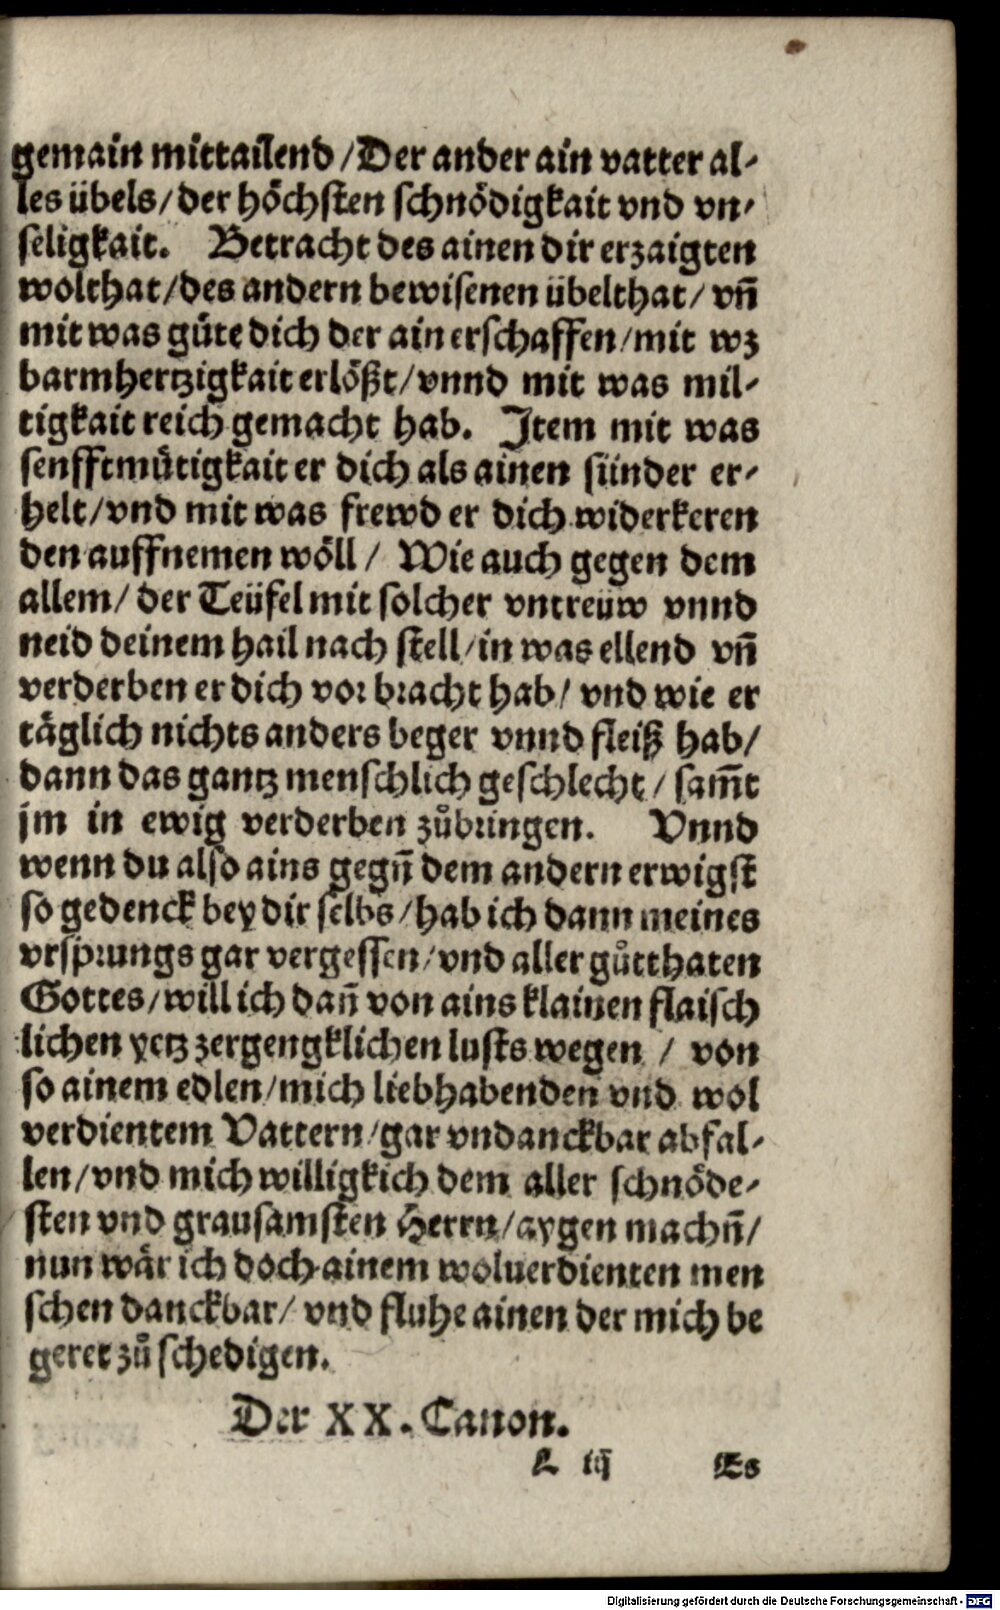 gemain mittailend /Der ander ain vatter al⸗
les übels/ der hoͤchsten schnoͤdigkait vnd vn⸗
seligkait. Betracht des ainen dir erzaigten
wolthat/des andern bewisenen übelthat/ vñ
mit was guͤte dich der ain erschaffen/mit wz
barmhertzigkait erloͤßt/vnnd mit was mil⸗
tigkait reich gemacht hab. Item mit was
senfftmuͤtigkait er dich als ainen sünder er⸗
helt/vnd mit was frewd er dich widerkeren
den auffnemen woͤll/ Wie auch gegen dem
allem/ der Teüfel mit solcher vntreüw vnnd
neid deinem hail nach stell/in was ellend vñ
verderben er dich vor bracht hab/ vnd wie er
taͤglich nichts anders beger vnnd fleiß hab/
dann das gantz menschlich geschlecht/ sam̃t
jm in ewig verderben zuͦbringen. Vnnd
wenn du also ains gegñ dem andern erwigst
so gedenck bey dir selbs/hab ich dann meines
vrsprungs gar vergessen/vnd aller guͦtthaten
Gottes/will ich dañ von ains klainen flaisch
lichen yetz zergengklichen lusts wegen / von
so ainem edlen/mich liebhabenden vnd wol
verdientem Vattern/gar vndanckbar abfal⸗
len/vnd mich willigkich dem aller schnoͤde⸗
sten vnd grausamsten Herrn/aygen machñ/
nun waͤr ich doch ainem woluerdienten men
schen danckbar/ vnd fluhe ainen der mich be
geret zuͦ schedigen.
Der XX. Canon.
L iij Es
Digitalisierung gefördert durch die Deutsche Forschungsgemeinschaft - DFG